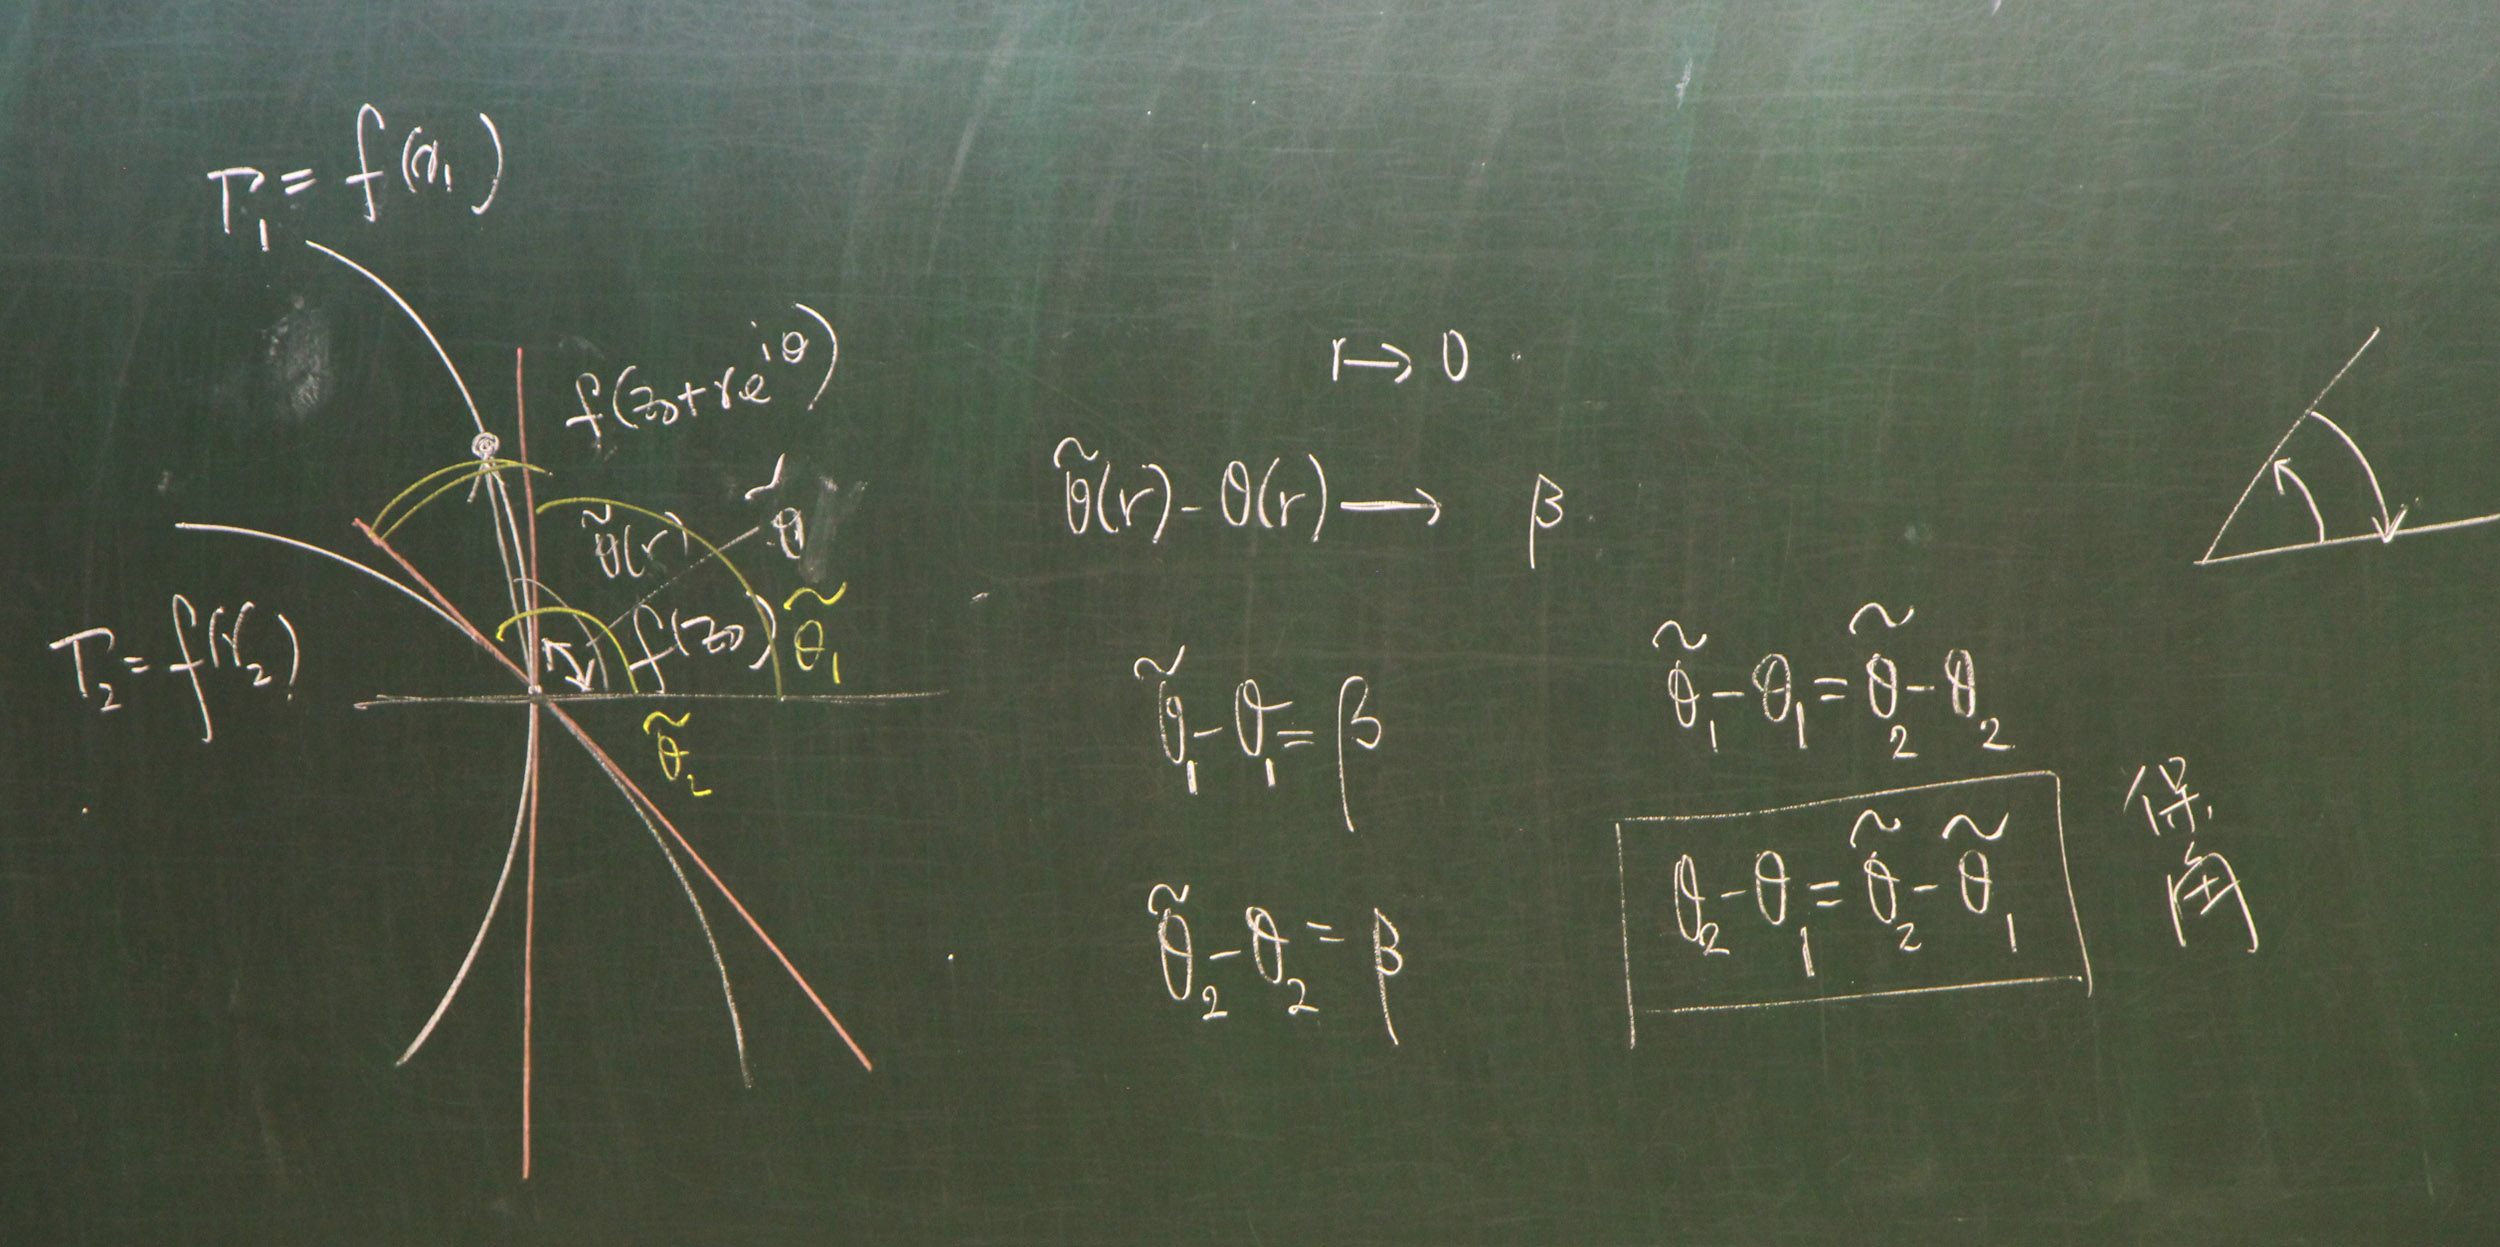 Γ₁ = f(γ₁)
f(z₀+re^{iθ})
θ̃(r)
θ̃
f(z₀)
θ̃₁
Γ₂ = f(γ₂)
θ̃₂
r→0
θ̃(r)-θ(r)→β
θ̃₁-θ₁=β
θ̃₂-θ₂=β
θ̃₁-θ₁=θ̃₂-θ₂
θ₂-θ₁=θ̃₂-θ̃₁
保
角